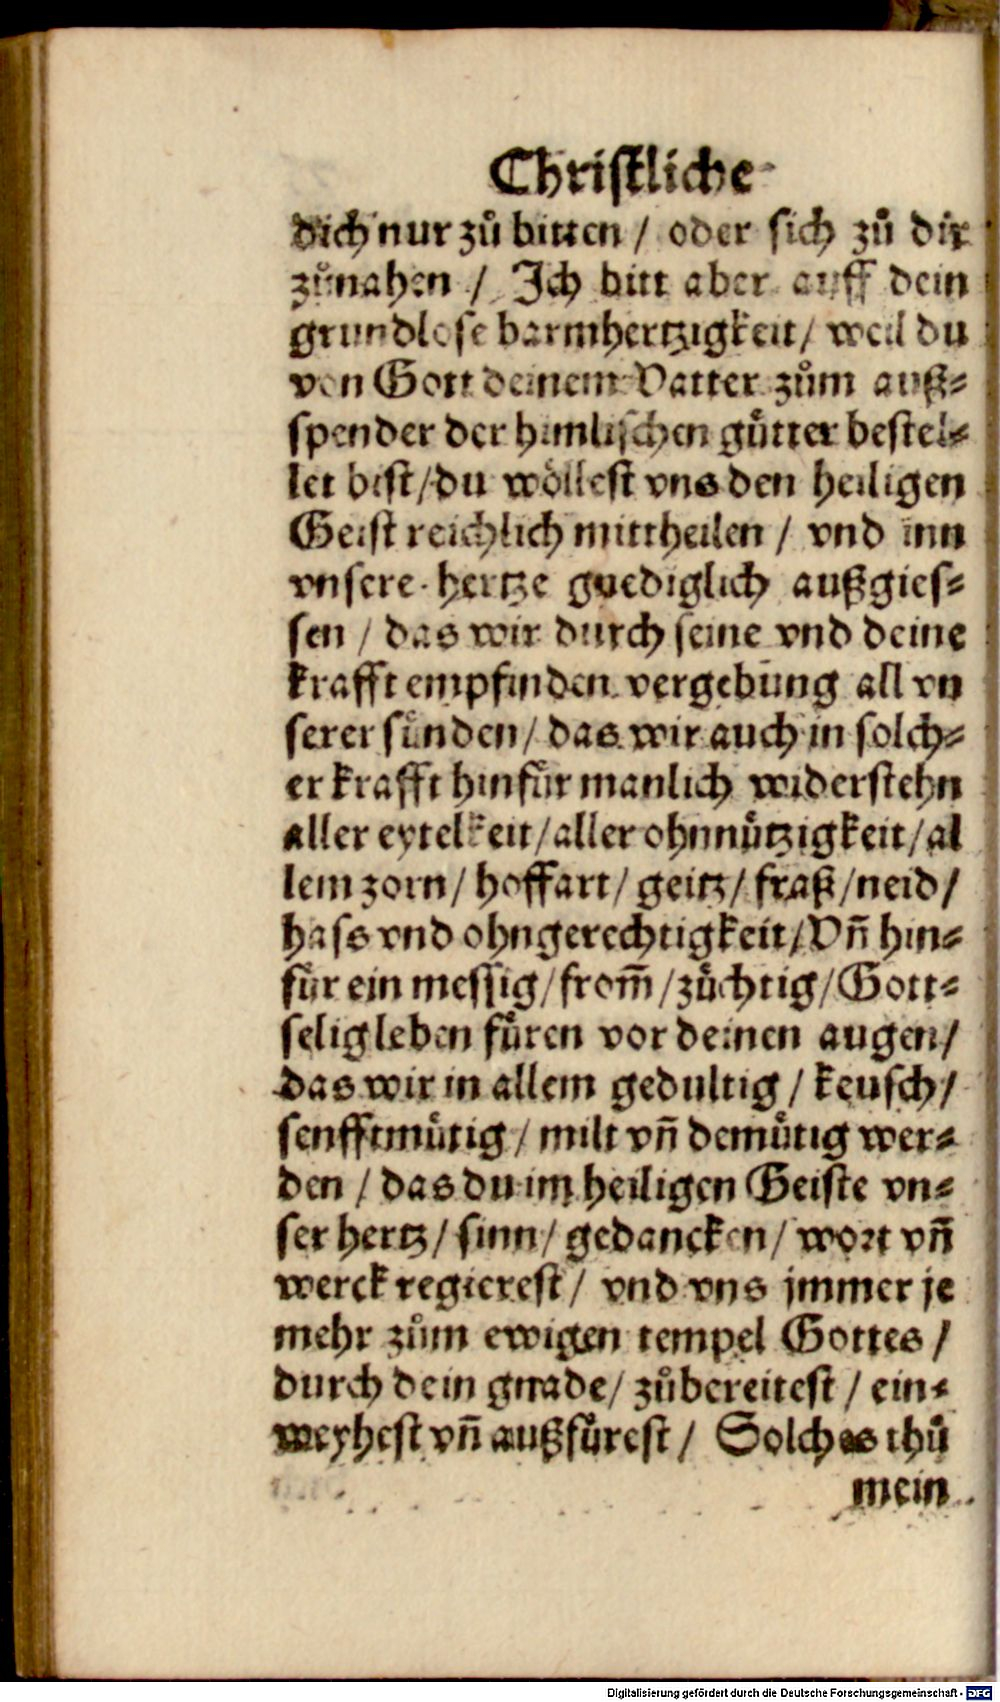 Christliche
dich nur zů bitten / oder sich zů dir
zůnahen / Ich bitt aber auff dein
grundlose barmhertzigkeit / weil du
von Gott deinem Vatter zům auß⸗
spender der himlischen gůtter bestel⸗
let bist / du wöllest vns den heiligen
Geist reichlich mittheilen / vnd inn
vnsere hertze gnediglich außgies⸗
sen / das wir durch seine vnd deine
krafft empfinden vergebung all vn
serer sůnden / das wir auch in solch⸗
er krafft hinfůr manlich widerstehn
aller eytelkeit / aller ohnnůtzigkeit / al
lem zorn / hoffart / geitz / fraß / neid /
hass vnd ohngerechtigkeit / Vñ hin⸗
fůr ein messig / from̃ / zůchtig / Gott⸗
selig leben fůren vor deinen augen /
das wir in allem gedultig / keusch /
senfftmůtig / milt vñ demůtig wer⸗
den / das du im heiligen Geiste vn⸗
ser hertz / sinn / gedancken / wort vñ
werck regierest / vnd vns jmmer je
mehr zům ewigen tempel Gottes /
durch dein gnade / zůbereitest / ein⸗
weyhest vñ außfůrest / Solches thů
mein
Digitalisierung gefördert durch die Deutsche Forschungsgemeinschaft - DFG